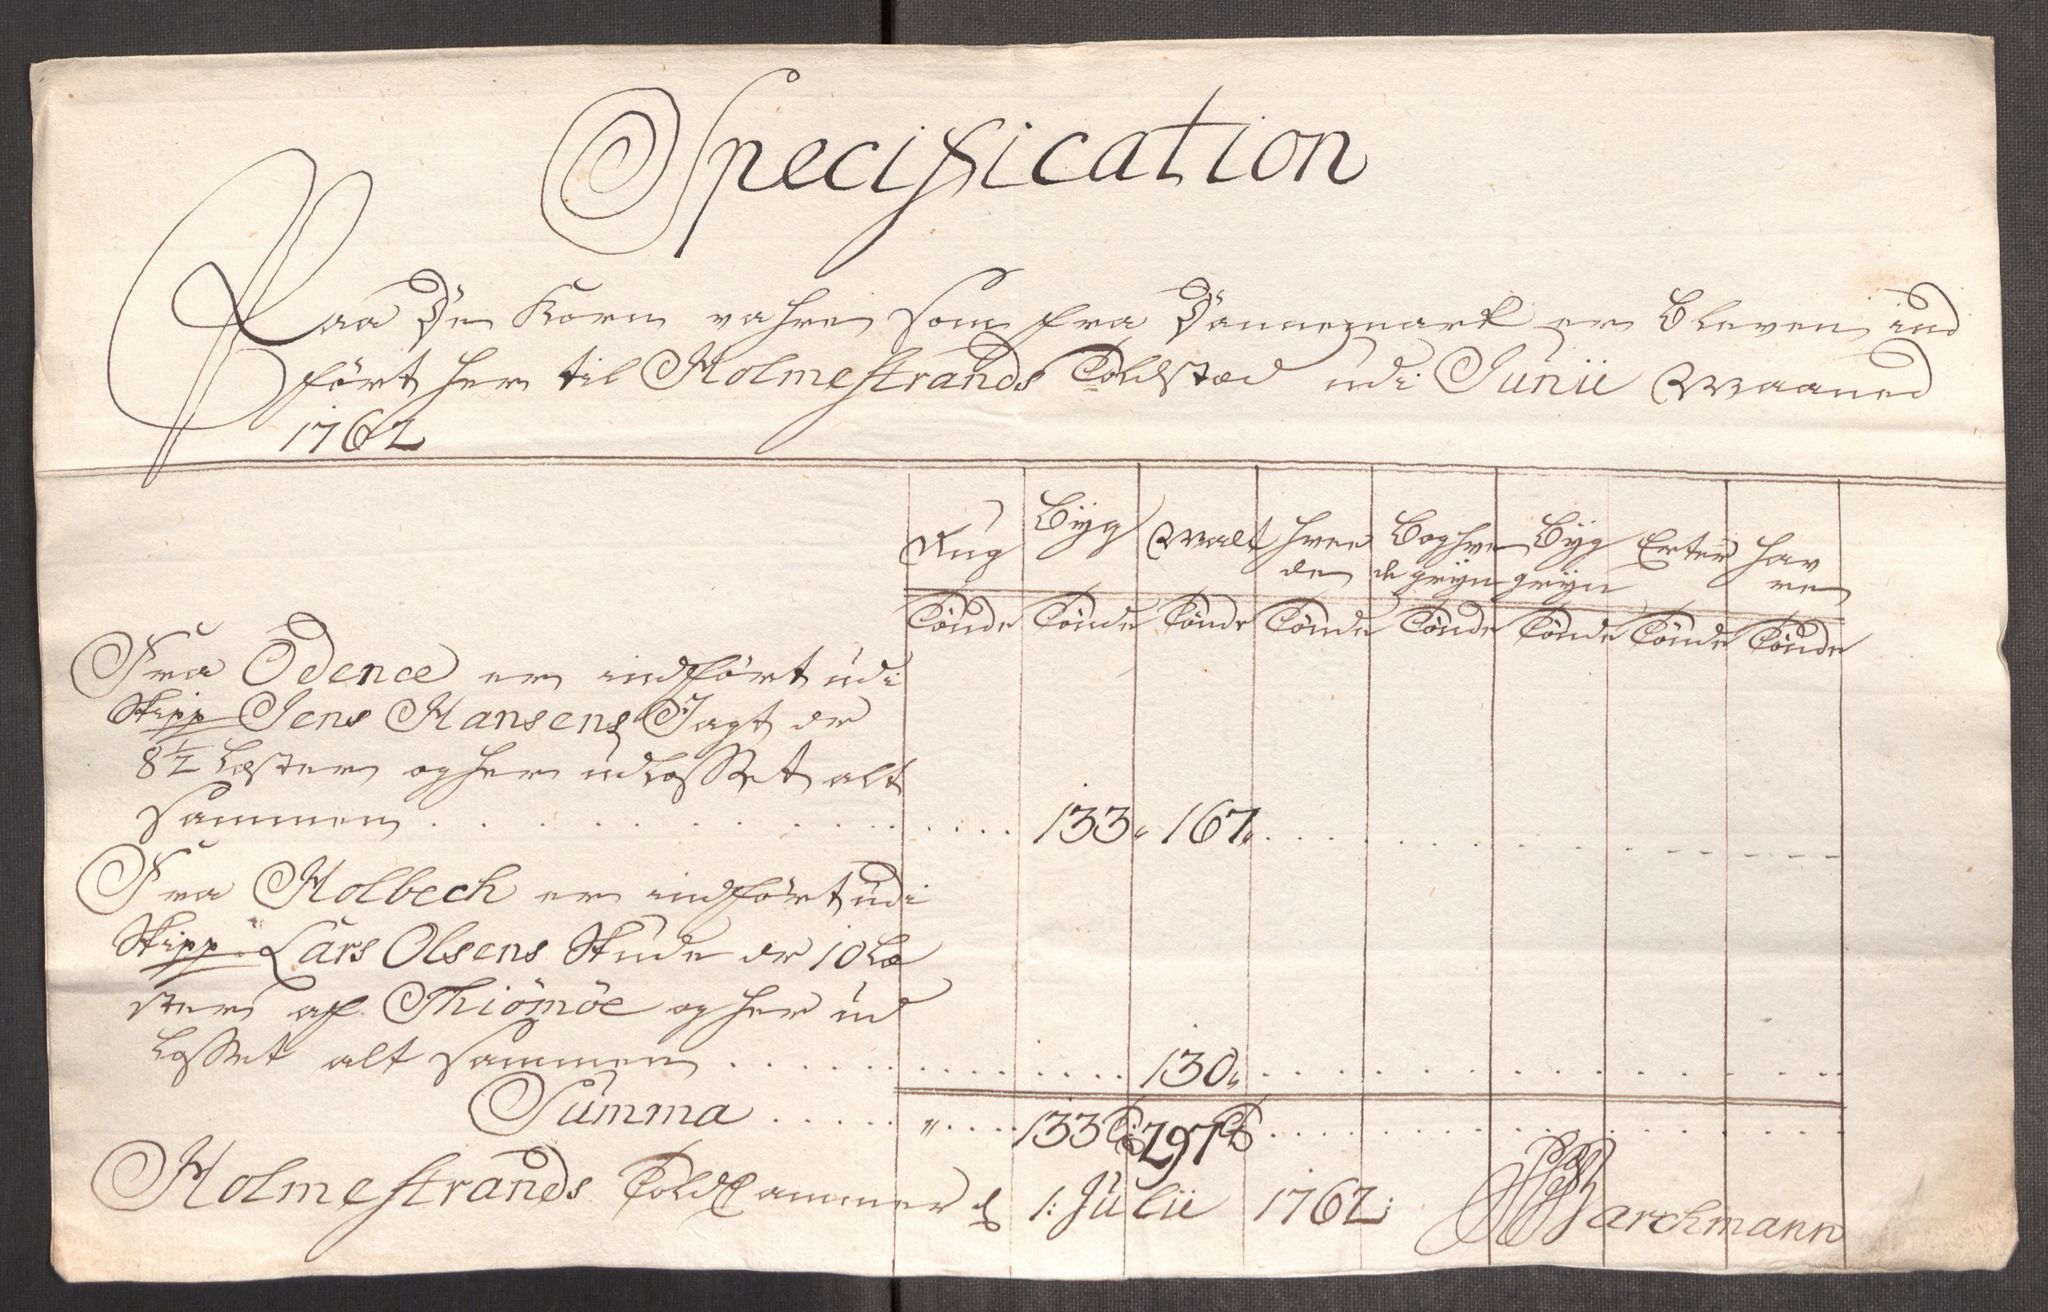 Specification
Paa De Korn vahrer som fra Dannemark er bleven ind
ført her til Holmestrands Toldsted udi Junii Maaned
1762
Rug Byg Malt Hvee Boghve Byg Erter Hav
den de gryn gryn ren
Tønde Tønde Tønde Tønde Tønde Tønde Tønde Tønde
Fra Odence er indført udi
Skipp Jens Hansens Jagt dr
8½ Læster og her udlosset alt
sammen . . . . . 133 „ 167 „ . . . . .
Fra Holbech er indført udi
Skipp Lars Olsens Skude dr 10 Læ
ster af Thiömöe og her ud
losset alt sammen . . . . . 130 „ . . . . .
Summa . . . . . „ . . . . 133 T 297 T . . . . .
Holmestrands Told Cammer d 1: Julii 1762: Barchmann